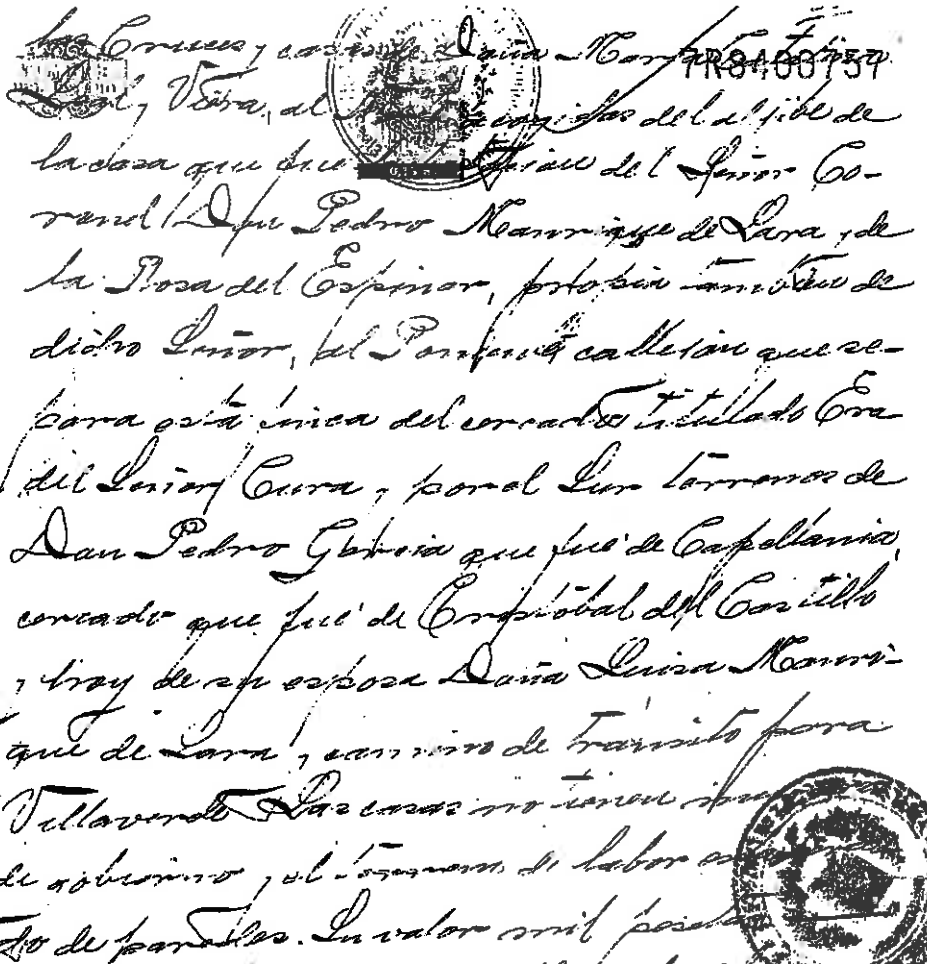 las Cruces y casa de Doña María
7R8400757
Leal y Viera, al acogidas del aljibe de
la casa que fue del Señor Co-
ronel Don Pedro Manrique de Lara y de
la Rosa del Espinar, propia tambien de
dicho Señor, al Poniente callejón que se-
para esta finca del cercado titulado Era
del Señor Cura, y por el Sur terrenos de
Don Pedro García que fué de Capellania,
cercado que fué de Cristóbal del Castillo
y hoy de su esposa Doña Luisa Manri-
que de Lara, y camino de tránsito para
Villaverde. Las casas no tienen
de gobierno y el terreno de labor
do de paredes. Su valor mil